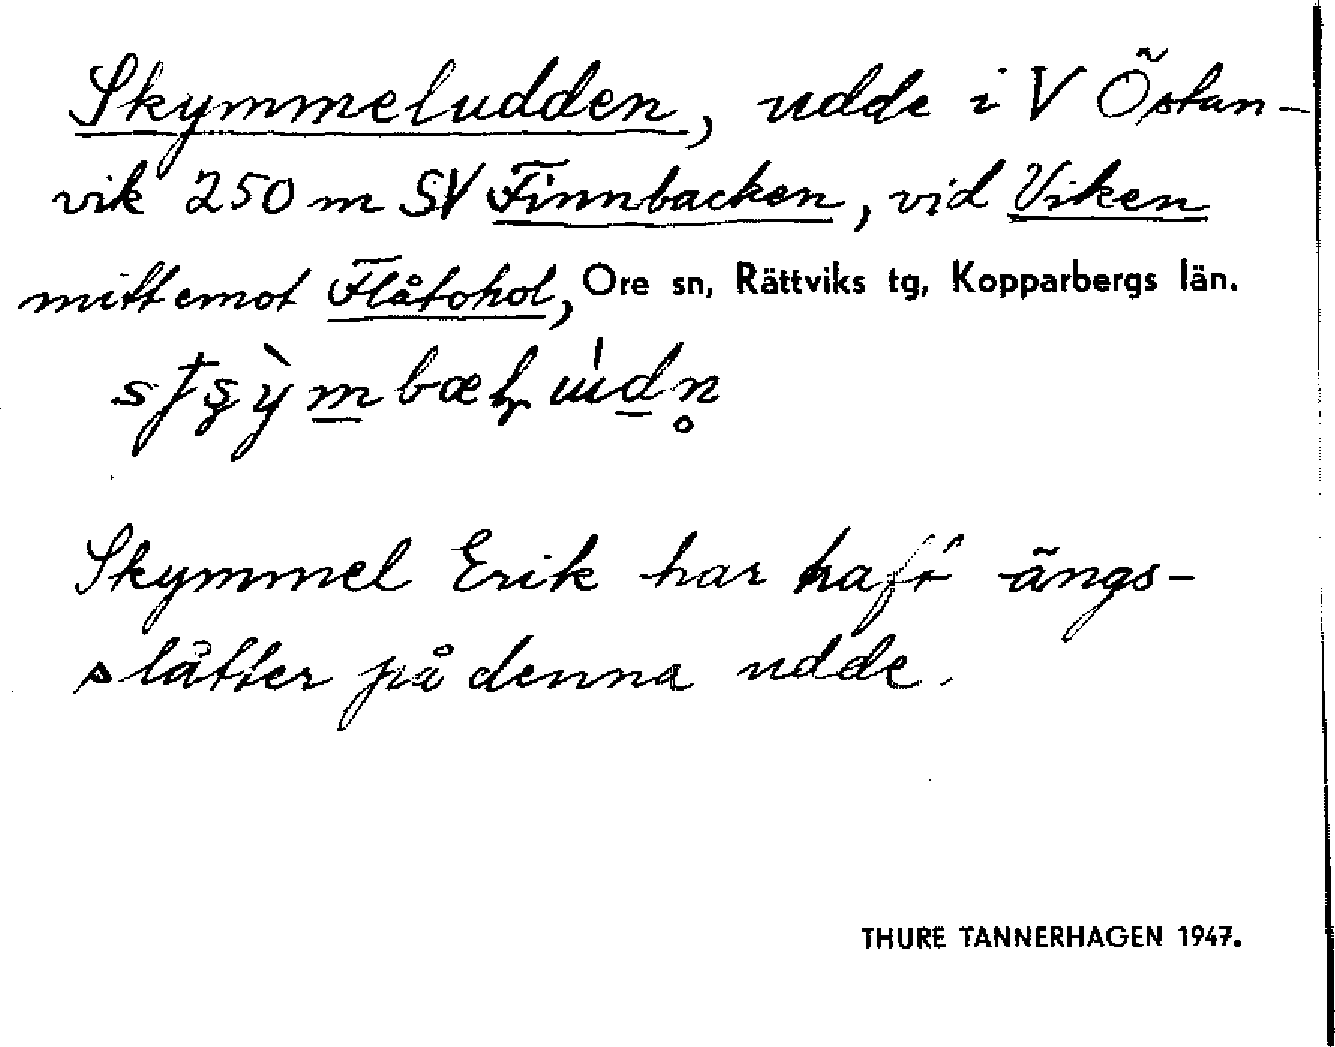 Skymmeludden, udde i V Östan-
vik 250 m SV Finnbacken, vid Viken
mitt emot Flåtohol, Ore sn, Rättviks tg, Kopparbergs län.
Skymmel Erik har haft ängs-
slåtter på denna udde.
THURE TANNERHAGEN 1947.